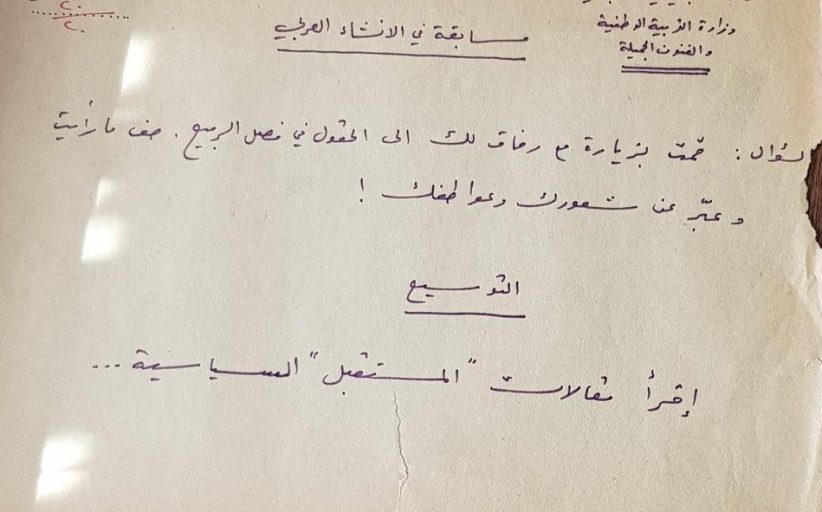 وزارة التربية الوطنية
والفنون الجميلة
مسابقة في الانشاء العربي
٢٠
٢٠
لسؤال : قمت بزيارة مع رفاق لك الى الحقول في فصل الربيع . صف ما رأيت
وعبّر عن شعورك وعواطفك !
التوسيع
إقرأ مقالات "المستقبل" السياسية ...